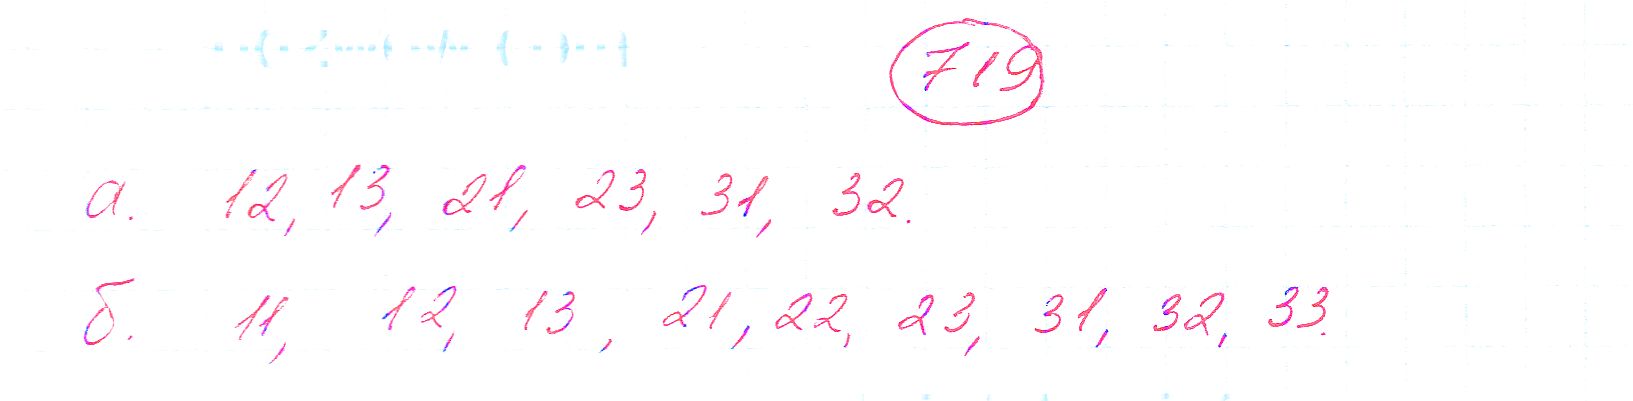 719
а. 12, 13, 21, 23, 31, 32.
б. 11, 12, 13, 21, 22, 23, 31, 32, 33.